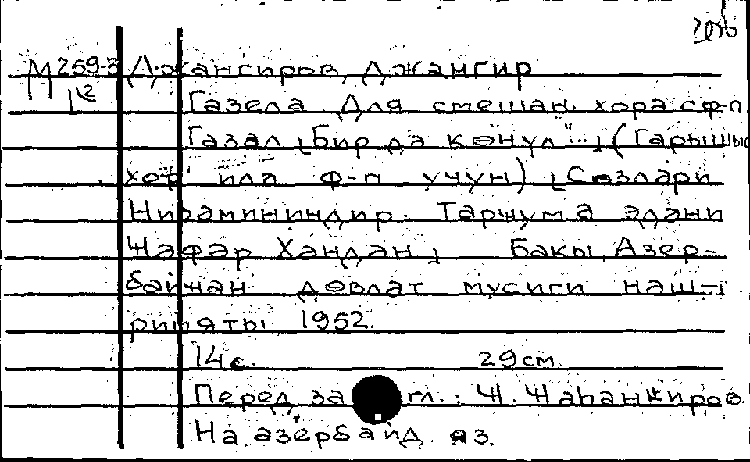 М 259-3 Джангиров, Джангир
12
Газела. Для смешан. хора с ф-п
Газал „Бир дә көнүл"... (Гарышыг
хор илә ф-п үчүн) Сөзләри
Низамининдир. Тәрҹүмә едәни
Ҹәфәр Хәндан, Бакы, Азәр-
байҹан дөвләт мусиги нәш-
рийяты 1952.
14 с. 29 см.
Перед за гл.: Ҹ. Ҹаһанкиров
На азербайд. яз.